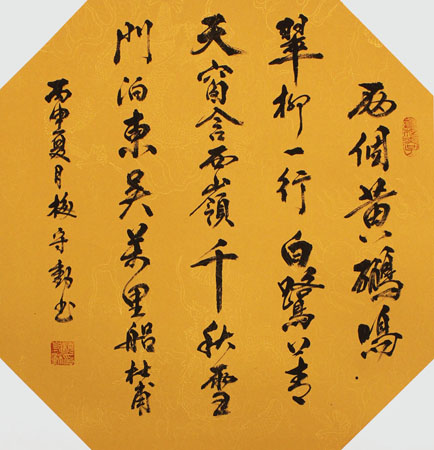 两個黄鸝鳴
翠柳一行白鷺上青
天窗含西嶺千秋雪
门泊東吴萬里船杜甫
丙申夏月梅守勤书